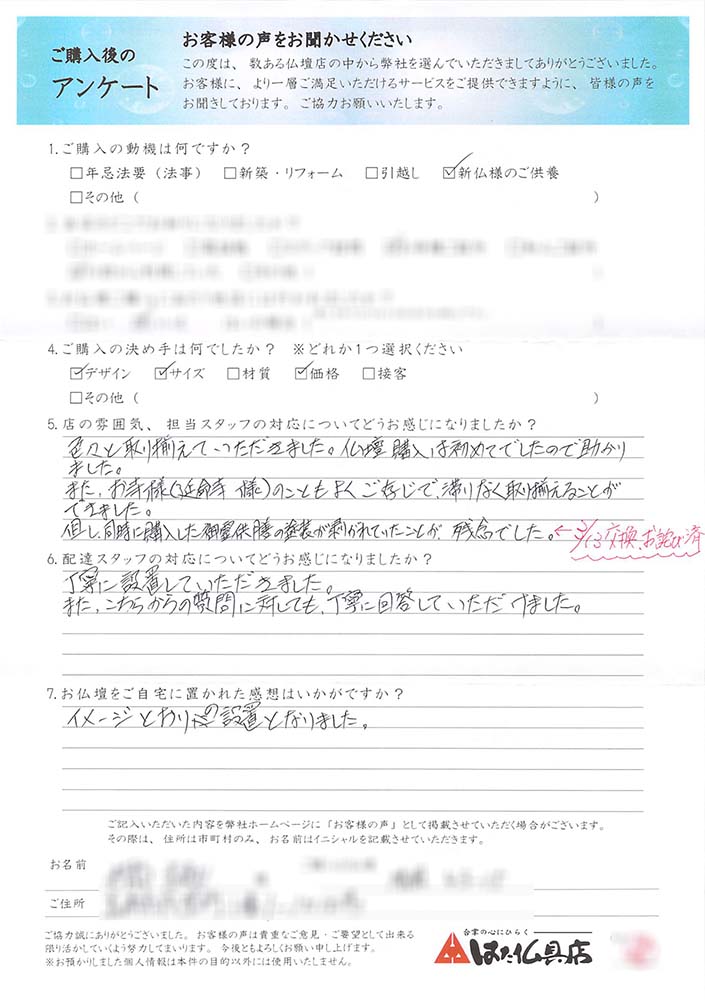 ご購入後の
アンケート
お客様の声をお聞かせください
この度は、数ある仏壇店の中から弊社を選んでいただきましてありがとうございました。
お客様に、より一層ご満足いただけるサービスをご提供できますように、皆様の声を
お聞きしております。ご協力お願いいたします。
1.ご購入の動機は何ですか？
□年忌法要（法事） □新築・リフォーム □引越し ☑新仏様のご供養
□その他（ ）
4.ご購入の決め手は何でしたか？ ※どれか1つ選択ください
☑デザイン ☑サイズ □材質 ☑価格 □接客
□その他（ ）
5.店の雰囲気、担当スタッフの対応についてどうお感じになりましたか？
色々と取り揃えていただきました。仏壇購入は初めてでしたので助かり
ました。
また、お寺様(延命寺様)のこともよくご存じで、滞りなく取り揃えることが
できました。
但し、同時に購入した御霊供膳の塗装が剥がれていたことが、残念でした。←3/13交換、お詫び済
6.配達スタッフの対応についてどうお感じになりましたか？
丁寧に設置していただきました。
また、こちらからの質問に対しても、丁寧に回答していただけました。
7.お仏壇をご自宅に置かれた感想はいかがですか？
イメージどおりの設置となりました。
ご記入いただいた内容を弊社ホームページに「お客様の声」として掲載させていただく場合がございます。
その際は、住所は市町村のみ、お名前はイニシャルを記載させていただきます。
お名前
ご住所
ご協力誠にありがとうございました。お客様の声は貴重なご意見・ご要望として出来る
限り活かしていくよう努力してまいります。今後ともよろしくお願い申し上げます。
※お預かりしました個人情報は本件の目的以外には使用いたしません。
合掌の心にひらく
はた仏具店